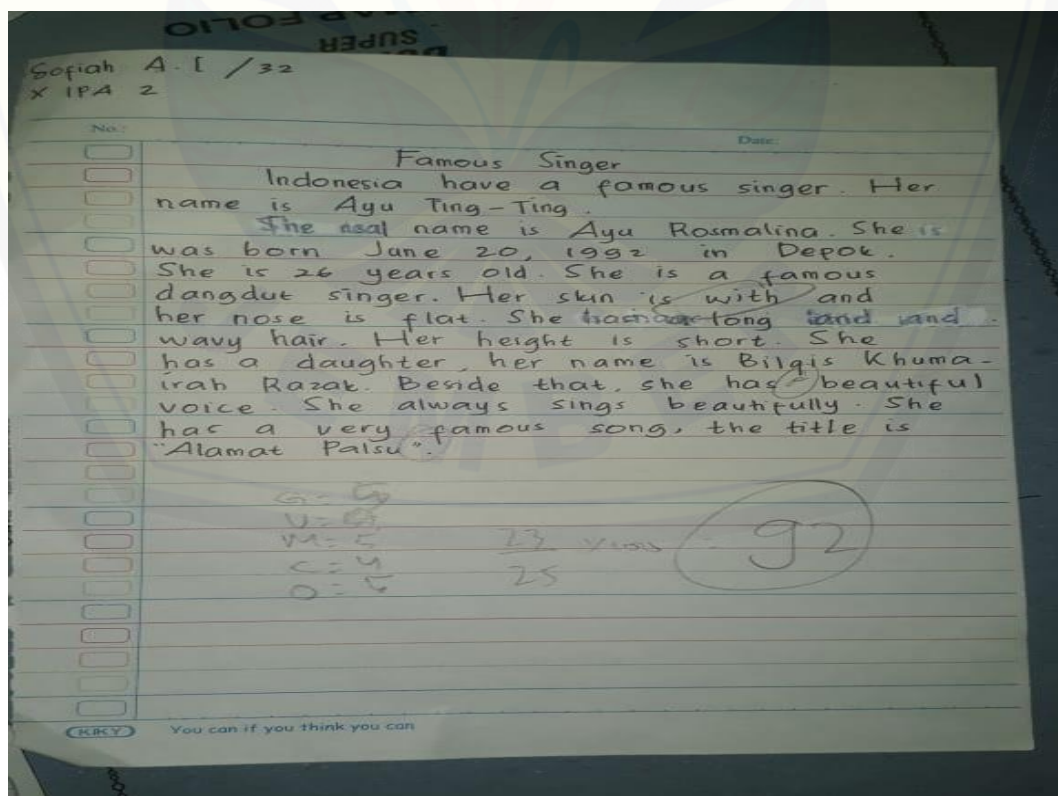 FOLIO
SUPER
Sofiah A. I /32
X IPA 2
No.:
Date:
Famous Singer
Indonesia have a famous singer. Her
name is Ayu Ting-Ting.
The name is Ayu Rosmalina. She is
was born June 20, 1992 in Depok.
She is 26 years old. She is a famous
dangdut singer. Her skin is with and
her nose is flat. She long and
wavy hair. Her height is short. She
has a daughter, her name is Bilqis Khuma-
irah Razak. Beside that, she has beautiful
voice. She always sings beautifully. She
has a very famous song, the title is
"Alamat Palsu".
G = 5
V =
M = 5
C = 4
O = 5
23
25
92
KIKY
You can if you think you can